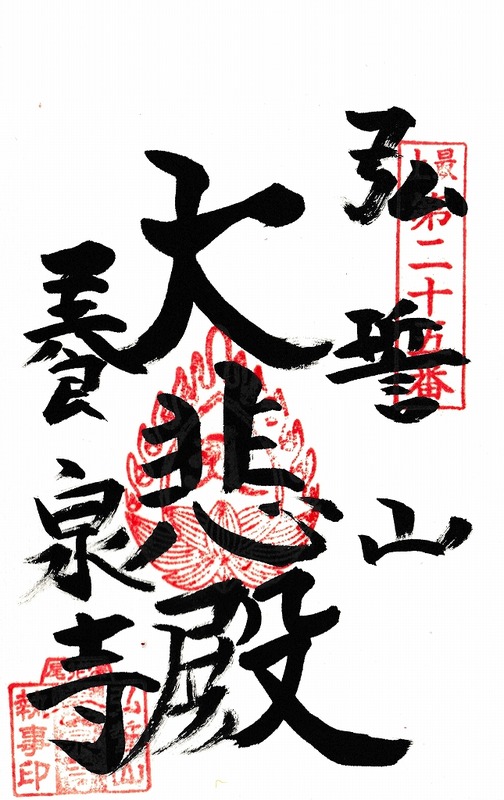 弘誓山
最上
第二十五番
大悲殿
養泉寺
尾
弘誓山
執事印